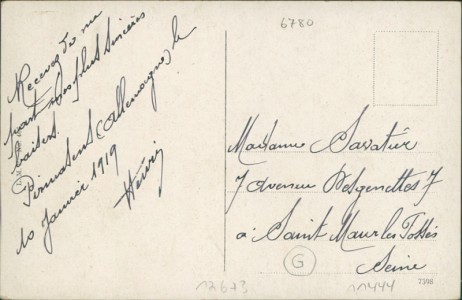 6780
Recevez de ma
part mes plus sincères
baisers.
Pirmasens (Allemagne) le
10 Janvier 1919
Henri
Madame Savatier
7 Avenue Desgenettes 7
à Saint Maur les Fossés
Seine
G
12673
11444
7396